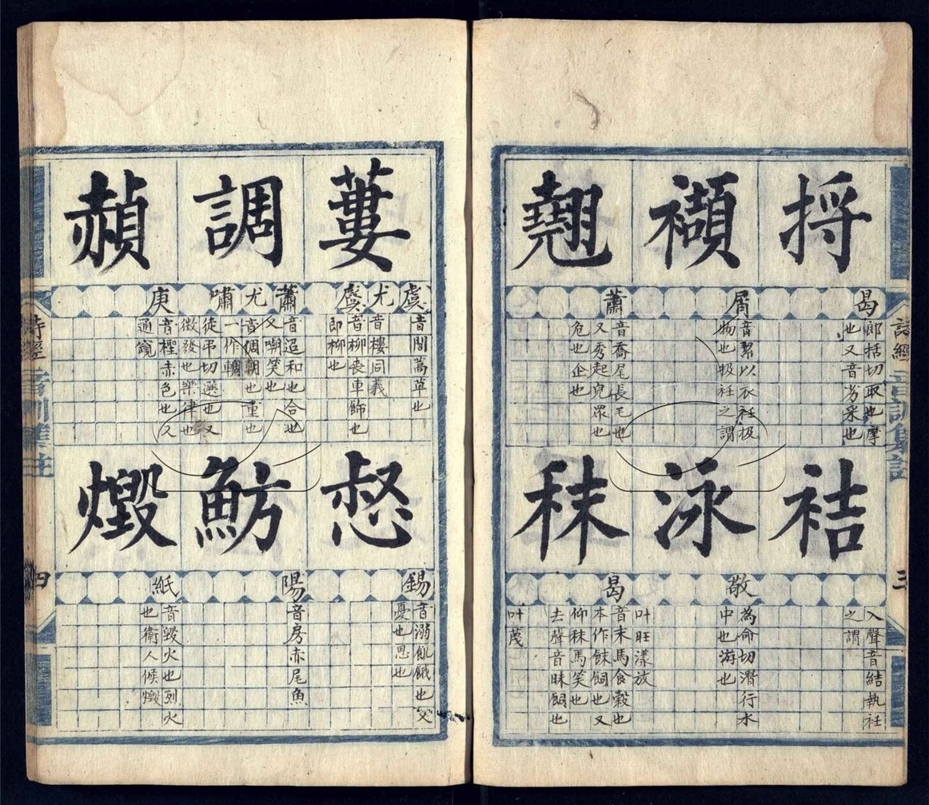 詩經
音訓集註
三
捋
曷
郎括切取也摩
也又音劣采也
襭
屑
音絜以衣衽扱
物也扱衽之謂
翹
蕭
音喬尾長毛也
又秀起皃眾也
危也企也
袺
入聲音結執衽
之謂
泳
敬
為命切潛行水
中也游也
秣
曷
叶旺漾放
音末馬食穀也
本作餗飼也又
仰秣馬笑也
去聲音昧飼也
叶茂
蔞
虞尤虞
音閭草也
音樓同義
音柳喪車飾也
即柳也
調
蕭尤嘯
音迢和也合也
又啁笑也
音侜朝也重也
一作輖
徒弔切選也又
徵發也樂律也
赬
庚
音檉赤色也又
通窺
惄
錫
音溺飢餓也又
憂也思也
魴
陽
音房赤尾魚
燬
紙
音毀火也烈火
也衛人候燬
詩經
音訓集註
四